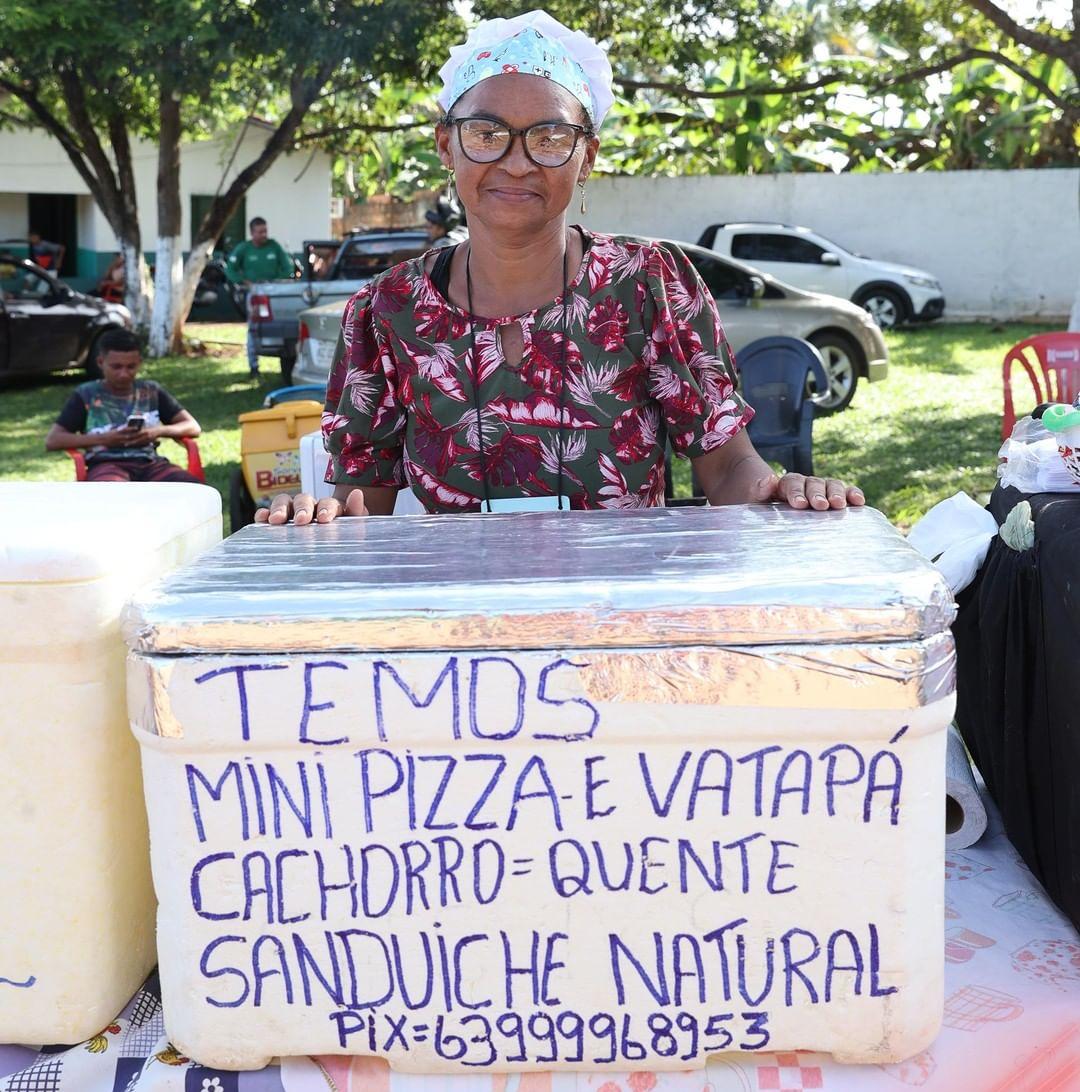 TEMOS
MINI PIZZA-E VATAPÁ
CACHORRO=QUENTE
SANDUICHE NATURAL
PIX=63999968953